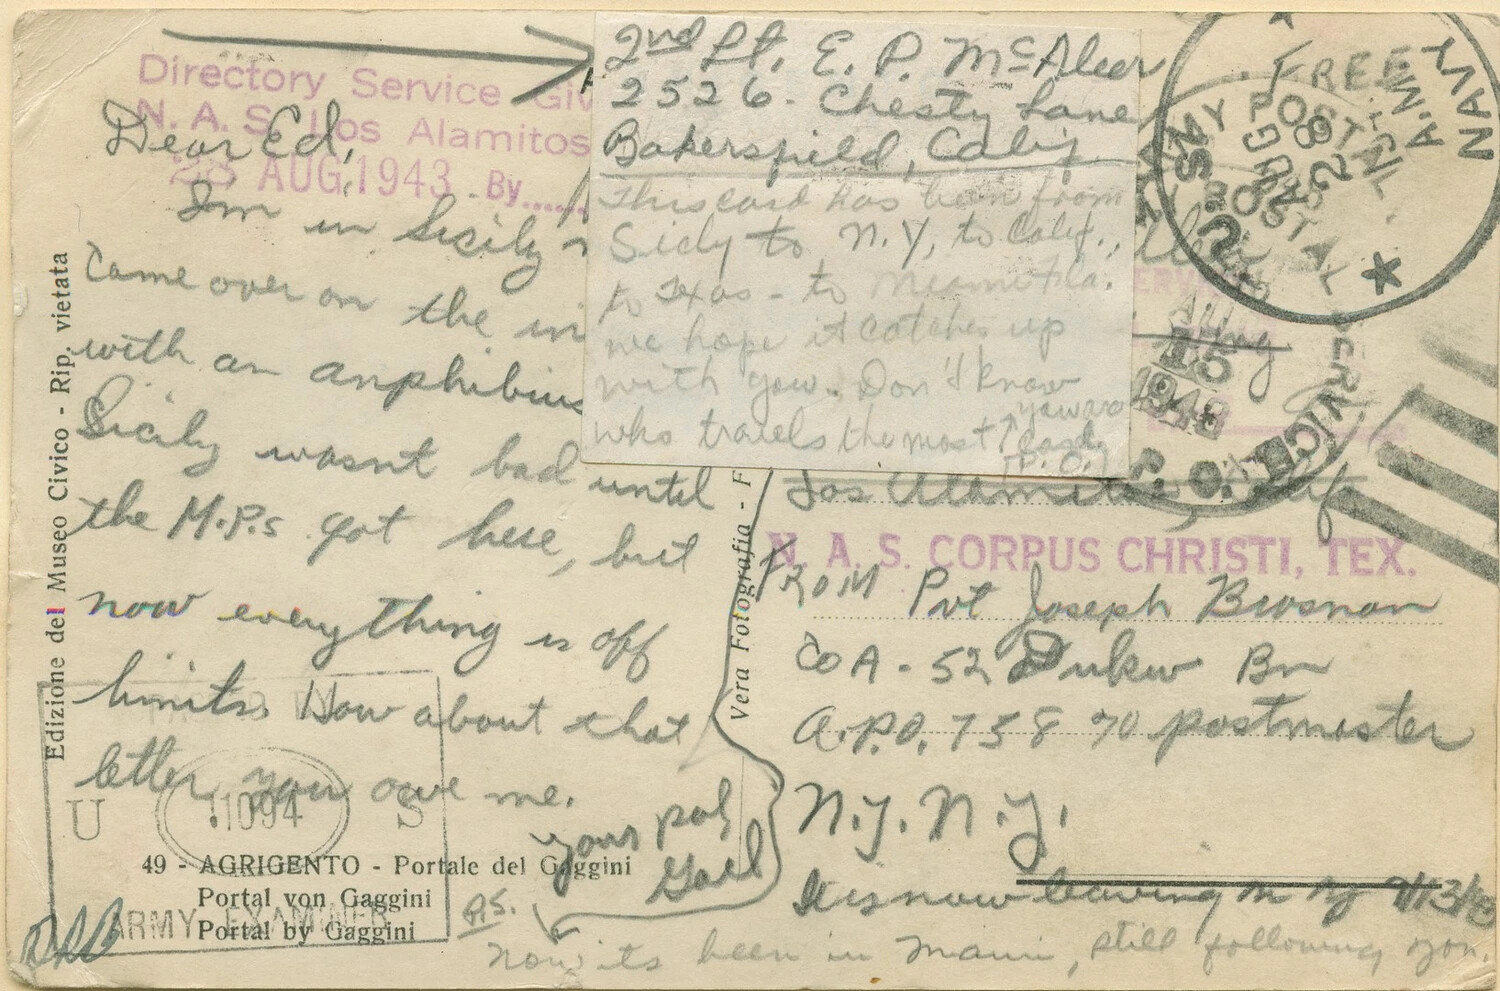 Directory Service Giv
N. A. S. Los Alamitos
28 AUG 1943 By......
Dear Ed,
I'm in Sicily
Came over on the in
with an anphibius
Sicily wasnt bad until
the M.P.s got here, but
now everything is off
limits. How about that
letter you owe me.
your pal
P.S.
Now its been in Miami, still following you.
2nd Lt. E. P. McAleer
2526 - Chesty Lane
Bakersfield, Calif
This card has been from
Sicily to N.Y, to Calif.,
to Texas - to Miami Fla.
we hope it catches up
with you. Don't know
who travels the most
(P.O.)
FREE
NAVY
U.S. ARMY POSTAL SERVICE
AUG
28
A.M.
AUG
15
1943
Los Alamitos, Calif
N. A. S. CORPUS CHRISTI, TEX.
From Pvt Joseph Brosnan
Co A - 52 Dukw Bn
A.P.O. 758 % postmaster
N.Y. N.Y.
It is now leaving
Edizione del Museo Civico - Rip. vietata
Vera Fotografia - F
49 - AGRIGENTO - Portale del Gaggini
Portal von Gaggini
Portal by Gaggini
U 11094 S
ARMY EXAMINER